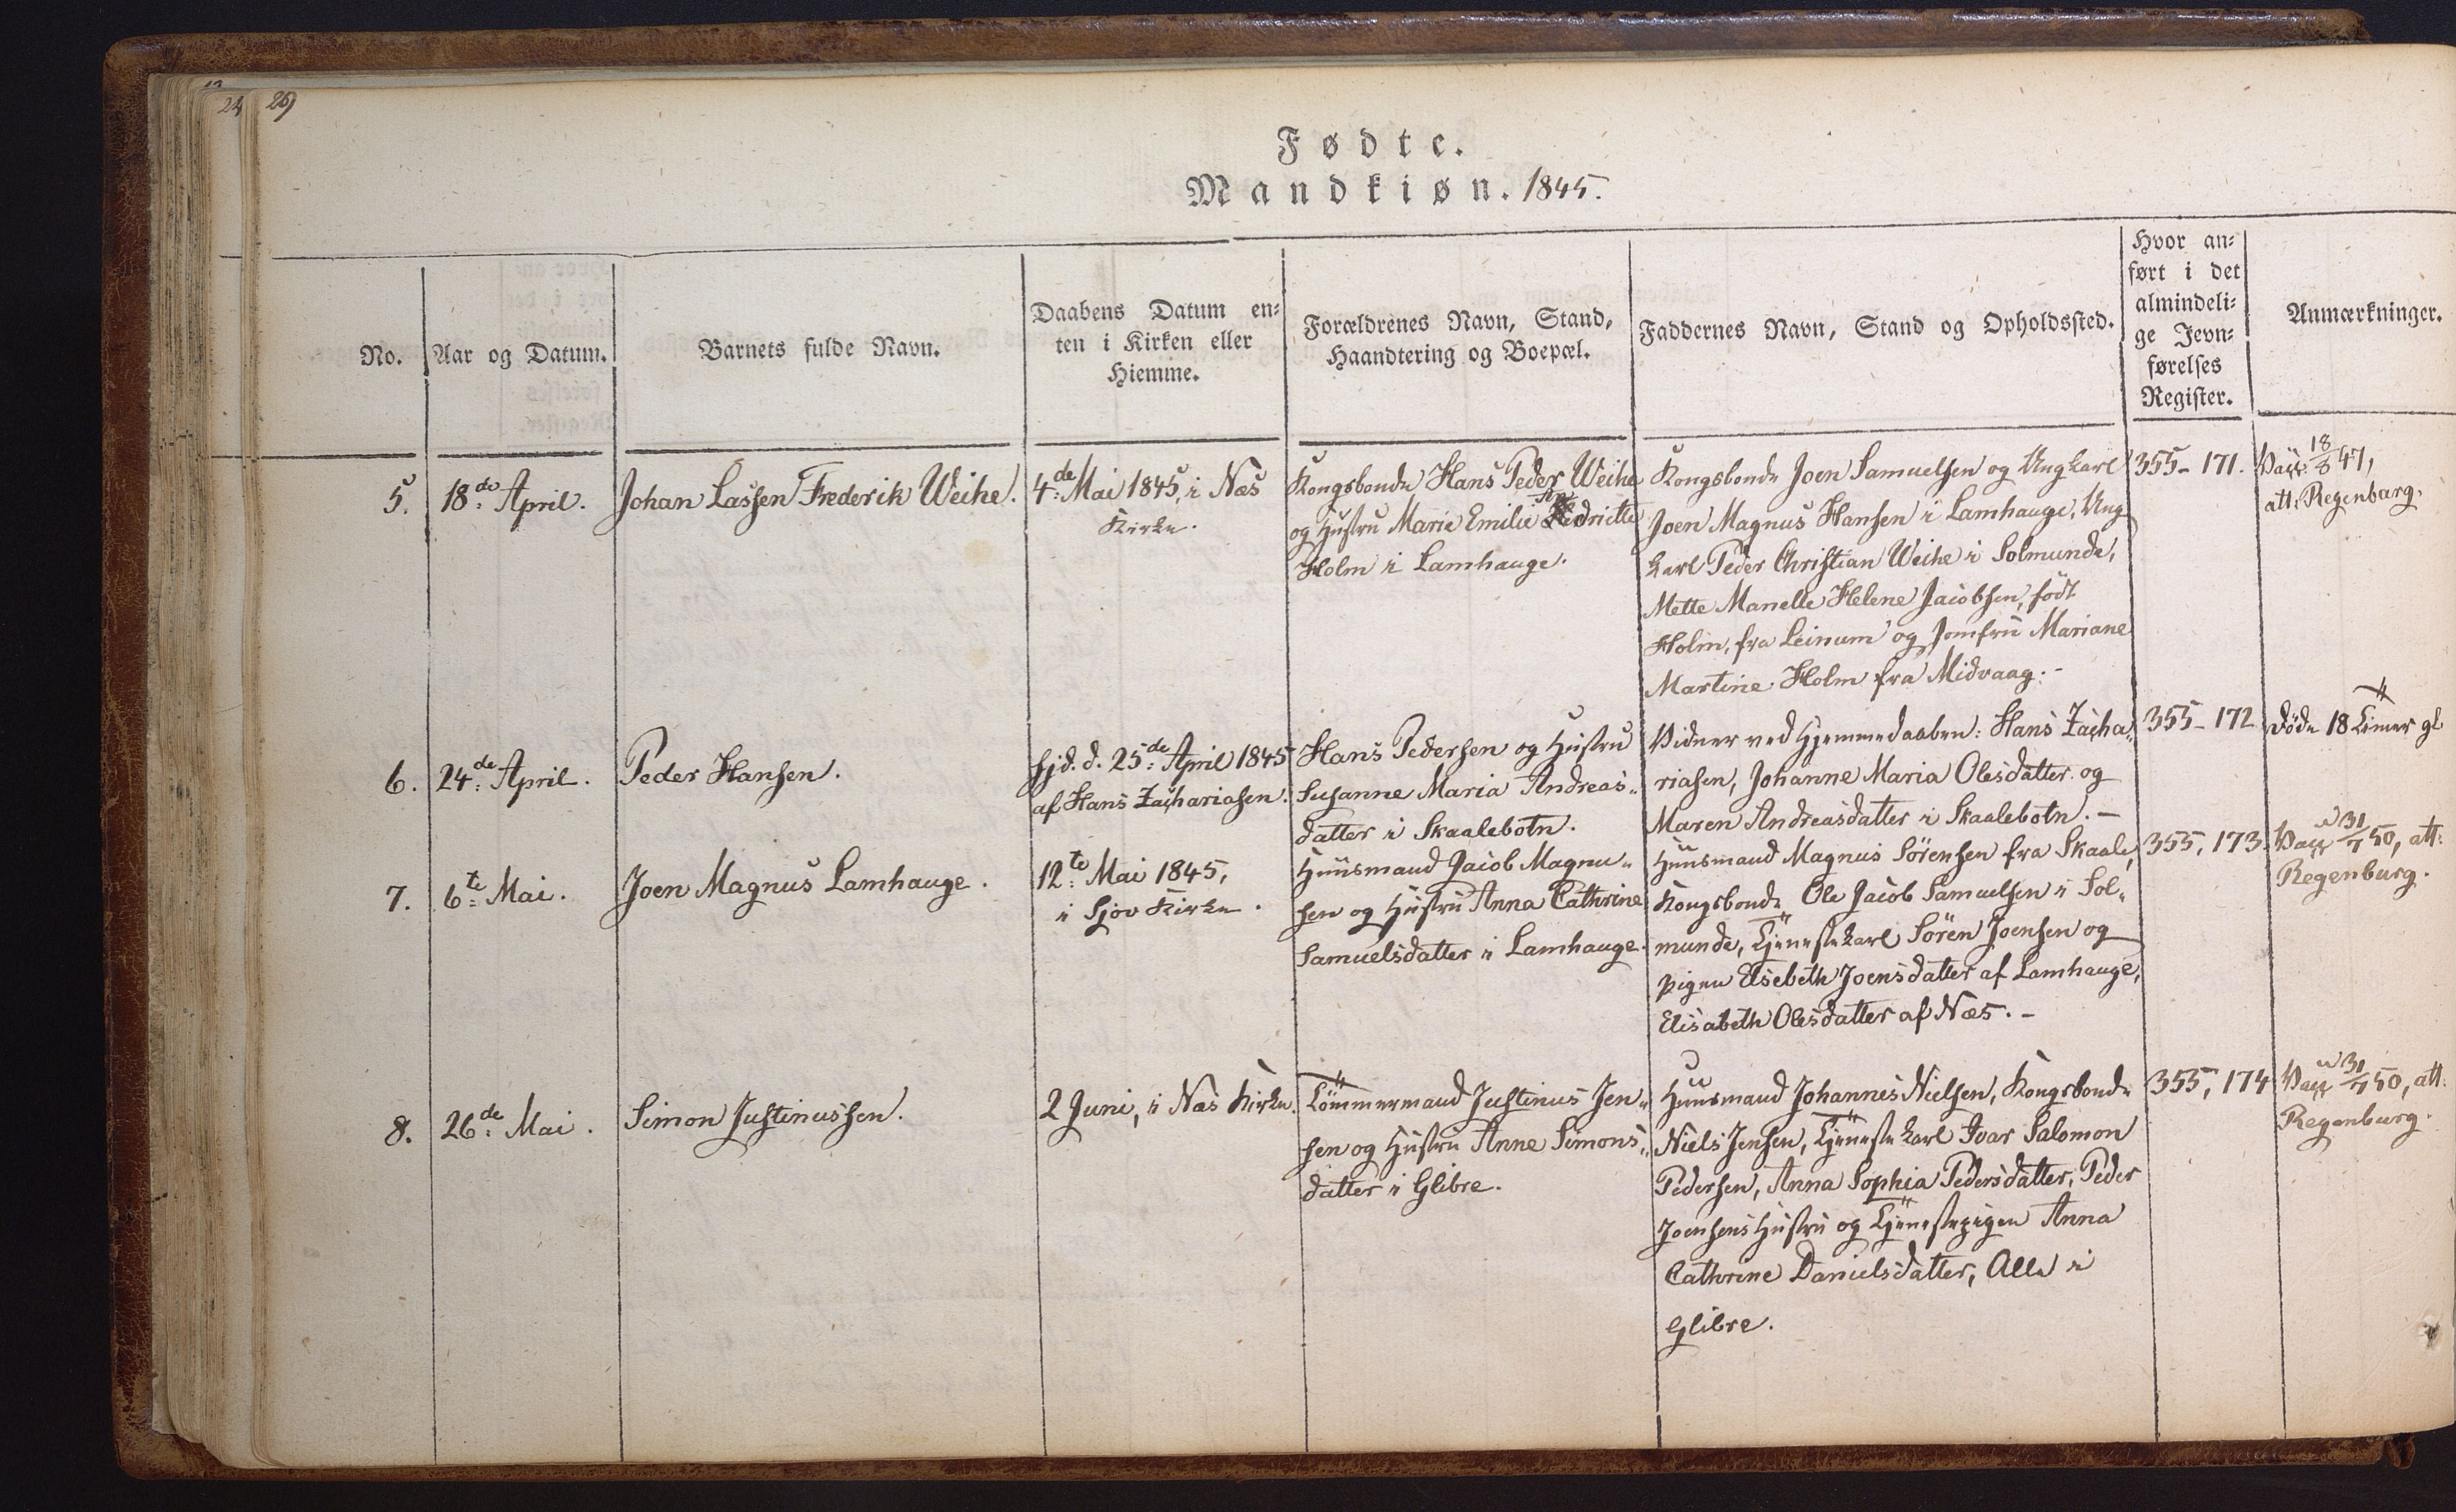 24
29
Fødte.
Mandkiøn. 1845.
No.
Aar og Datum.
Barnets fulde Navn.
Daabens Datum en=
ten i Kirken eller
Hiemme.
Forældrenes Navn, Stand,
Haandtering og Boepæl.
Faddernes Navn, Stand og Opholdssted.
Hvor an=
ført i det
almindeli=
ge Jevn=
førelses
Register.
Anmærkninger.
5.
18de April.
Johan Lassen Frederik Weihe.
4de Mai 1845, i Næs
Kirke.
Kongsbonde Hans Peder Weihe
og Hustru Marie Emilie
Holm i Lamhauge.
Kongsbonde Joen Samuelsen og Ungkarl
Joen Magnus Hansen i Lamhauge, Ung
karl Peder Christian Weihe i Solmunde,
Mette Manelle Helene Jacobsen, födt
Holm, fra Leinum og Jomfru Mariane
Martine Holm fra Midvaag. -
355- 171.
Vacc. 18/8 47,
att: Regenburg.
6.
24de April.
Peder Hansen.
hjd. d. 25de April 1845
af Hans Zachariasen.
Hans Pedersen og Hustru
Susanne Maria Andreas„
datter i Skaalebotn.
Vidner ved Hjemmedaaben: Hans Zacha„
riasen, Johanne Maria Olesdatter og
Maren Andreasdatter i Skaalebotn. —
355- 172
Döde 18 Timer gl
7.
6te Mai.
Joen Magnus Lamhauge.
12te Mai 1845,
i Sjov Kirke.
Huusmand Jacob Magnu„
sen og Hustru Anna Cathrine
Samuelsdatter i Lamhauge.
Huusmand Magnus Sörensen fra Skaale,
Kongsbonde Ole Jacob Samuelsen i Sol„
munde, Tjenestekarl Sören Joensen og
pigen Elsebeth Joensdatter af Lamhauge,
Elisabeth Olesdatter af Næs. -
355, 173.
Vacc 31/7 50, att:
Regenburg.
8.
26de Mai.
Simon Justinussen.
2 Juni, i Næs Kirke.
Tömmermand Justinus Jen„
sen og Hustru Anne Simons„
datter i Glibre.
Huusmand Johannes Nielsen, Kongsbonde
Niels Jensen, Tjenestekarl Ivar Salomon
Pedersen, Anna Sophia Pedersdatter, Peder
Joensens Hustru og Tjenestepigen Anna
Cathrine Danielsdatter, Alle i
Glibre.
355, 174
Vacc 31/7 50, att.
Regenburg.